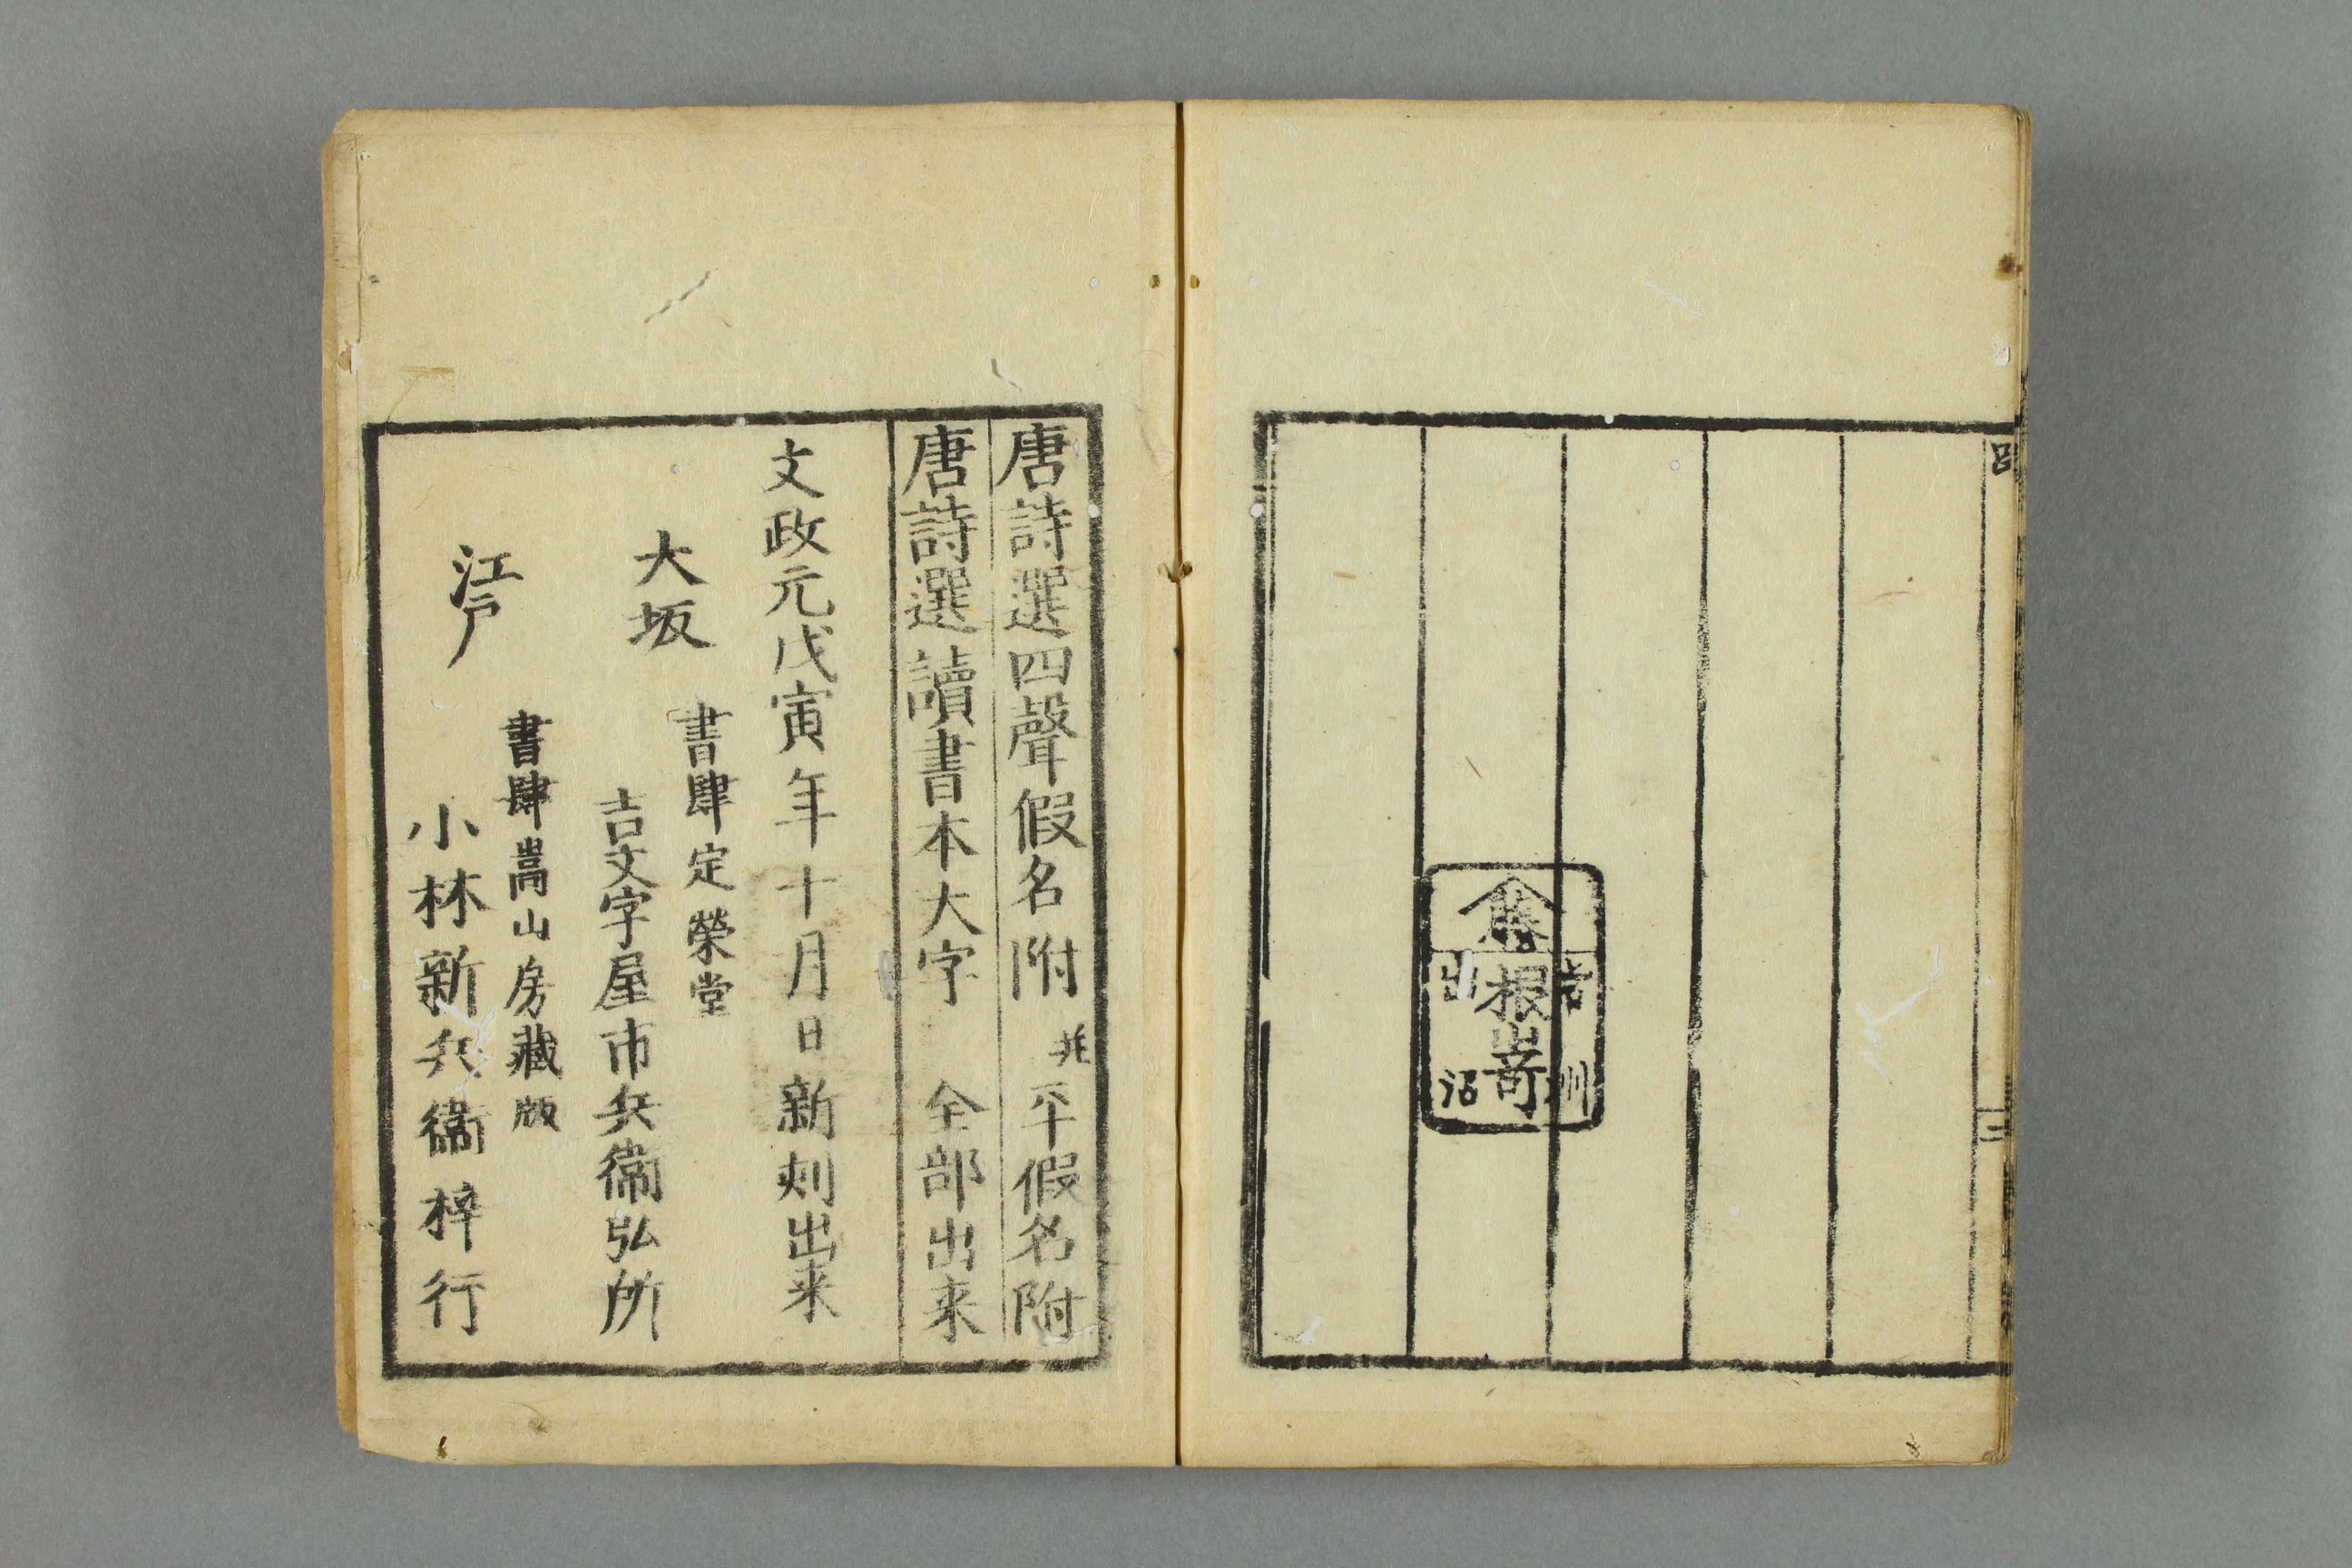 呂
二
藤
根嵜
州
沼
唐詩選四聲假名附 並平假名附
唐詩選讀書本大字 全部出来
文政元戊寅年十月日新刻出来
書肆定榮堂
大坂
吉文字屋市兵衞弘所
書肆嵩山房藏版
江戸
小林新兵衞梓行